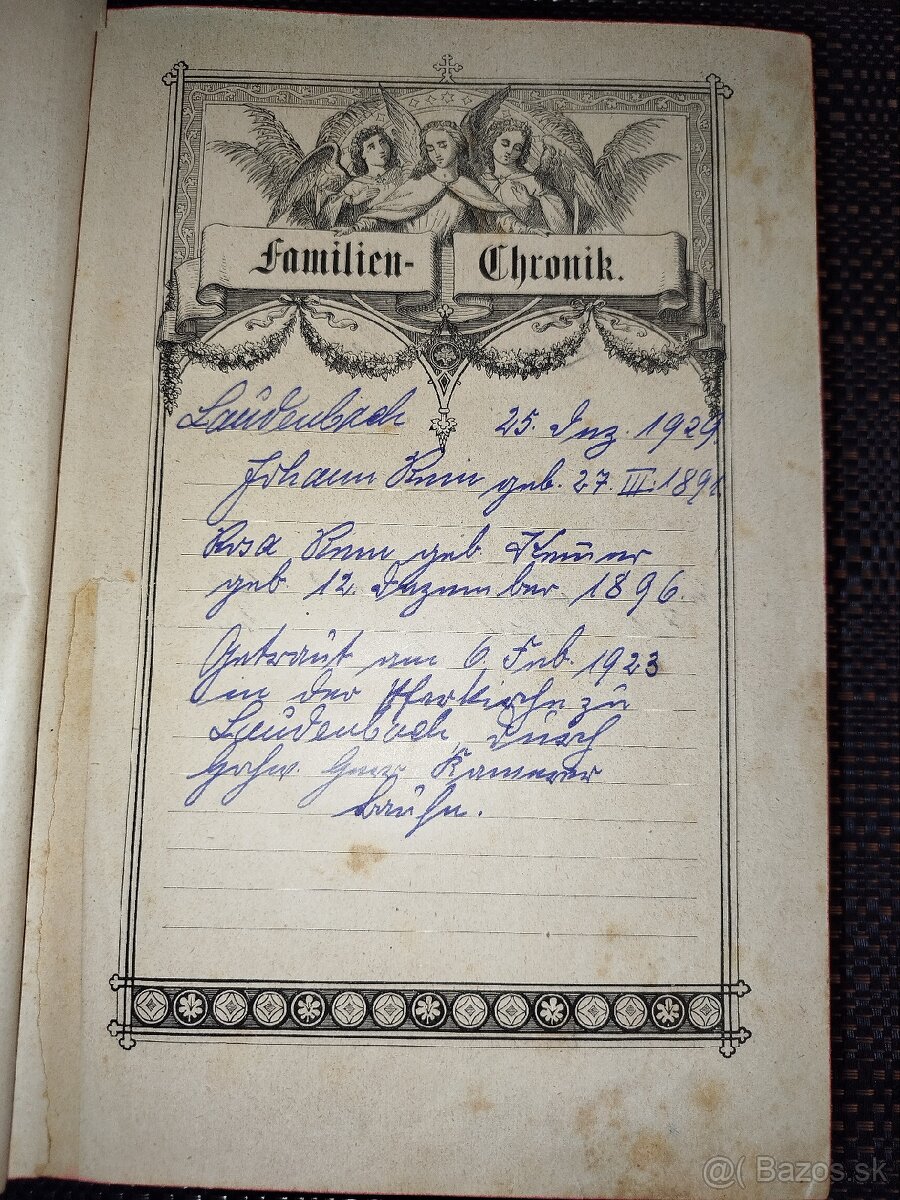 Familien-Chronik.
Laudenbach 25. Dez. 1929
Johann geb. 27. III. 189
Rosa geb
geb 12. Dezember 1896.
Getraut am 6. Feb. 1923
in der Pfarrkirche zu
Laudenbach, durch
Hochw. Kamerer
@( Bazos.sk